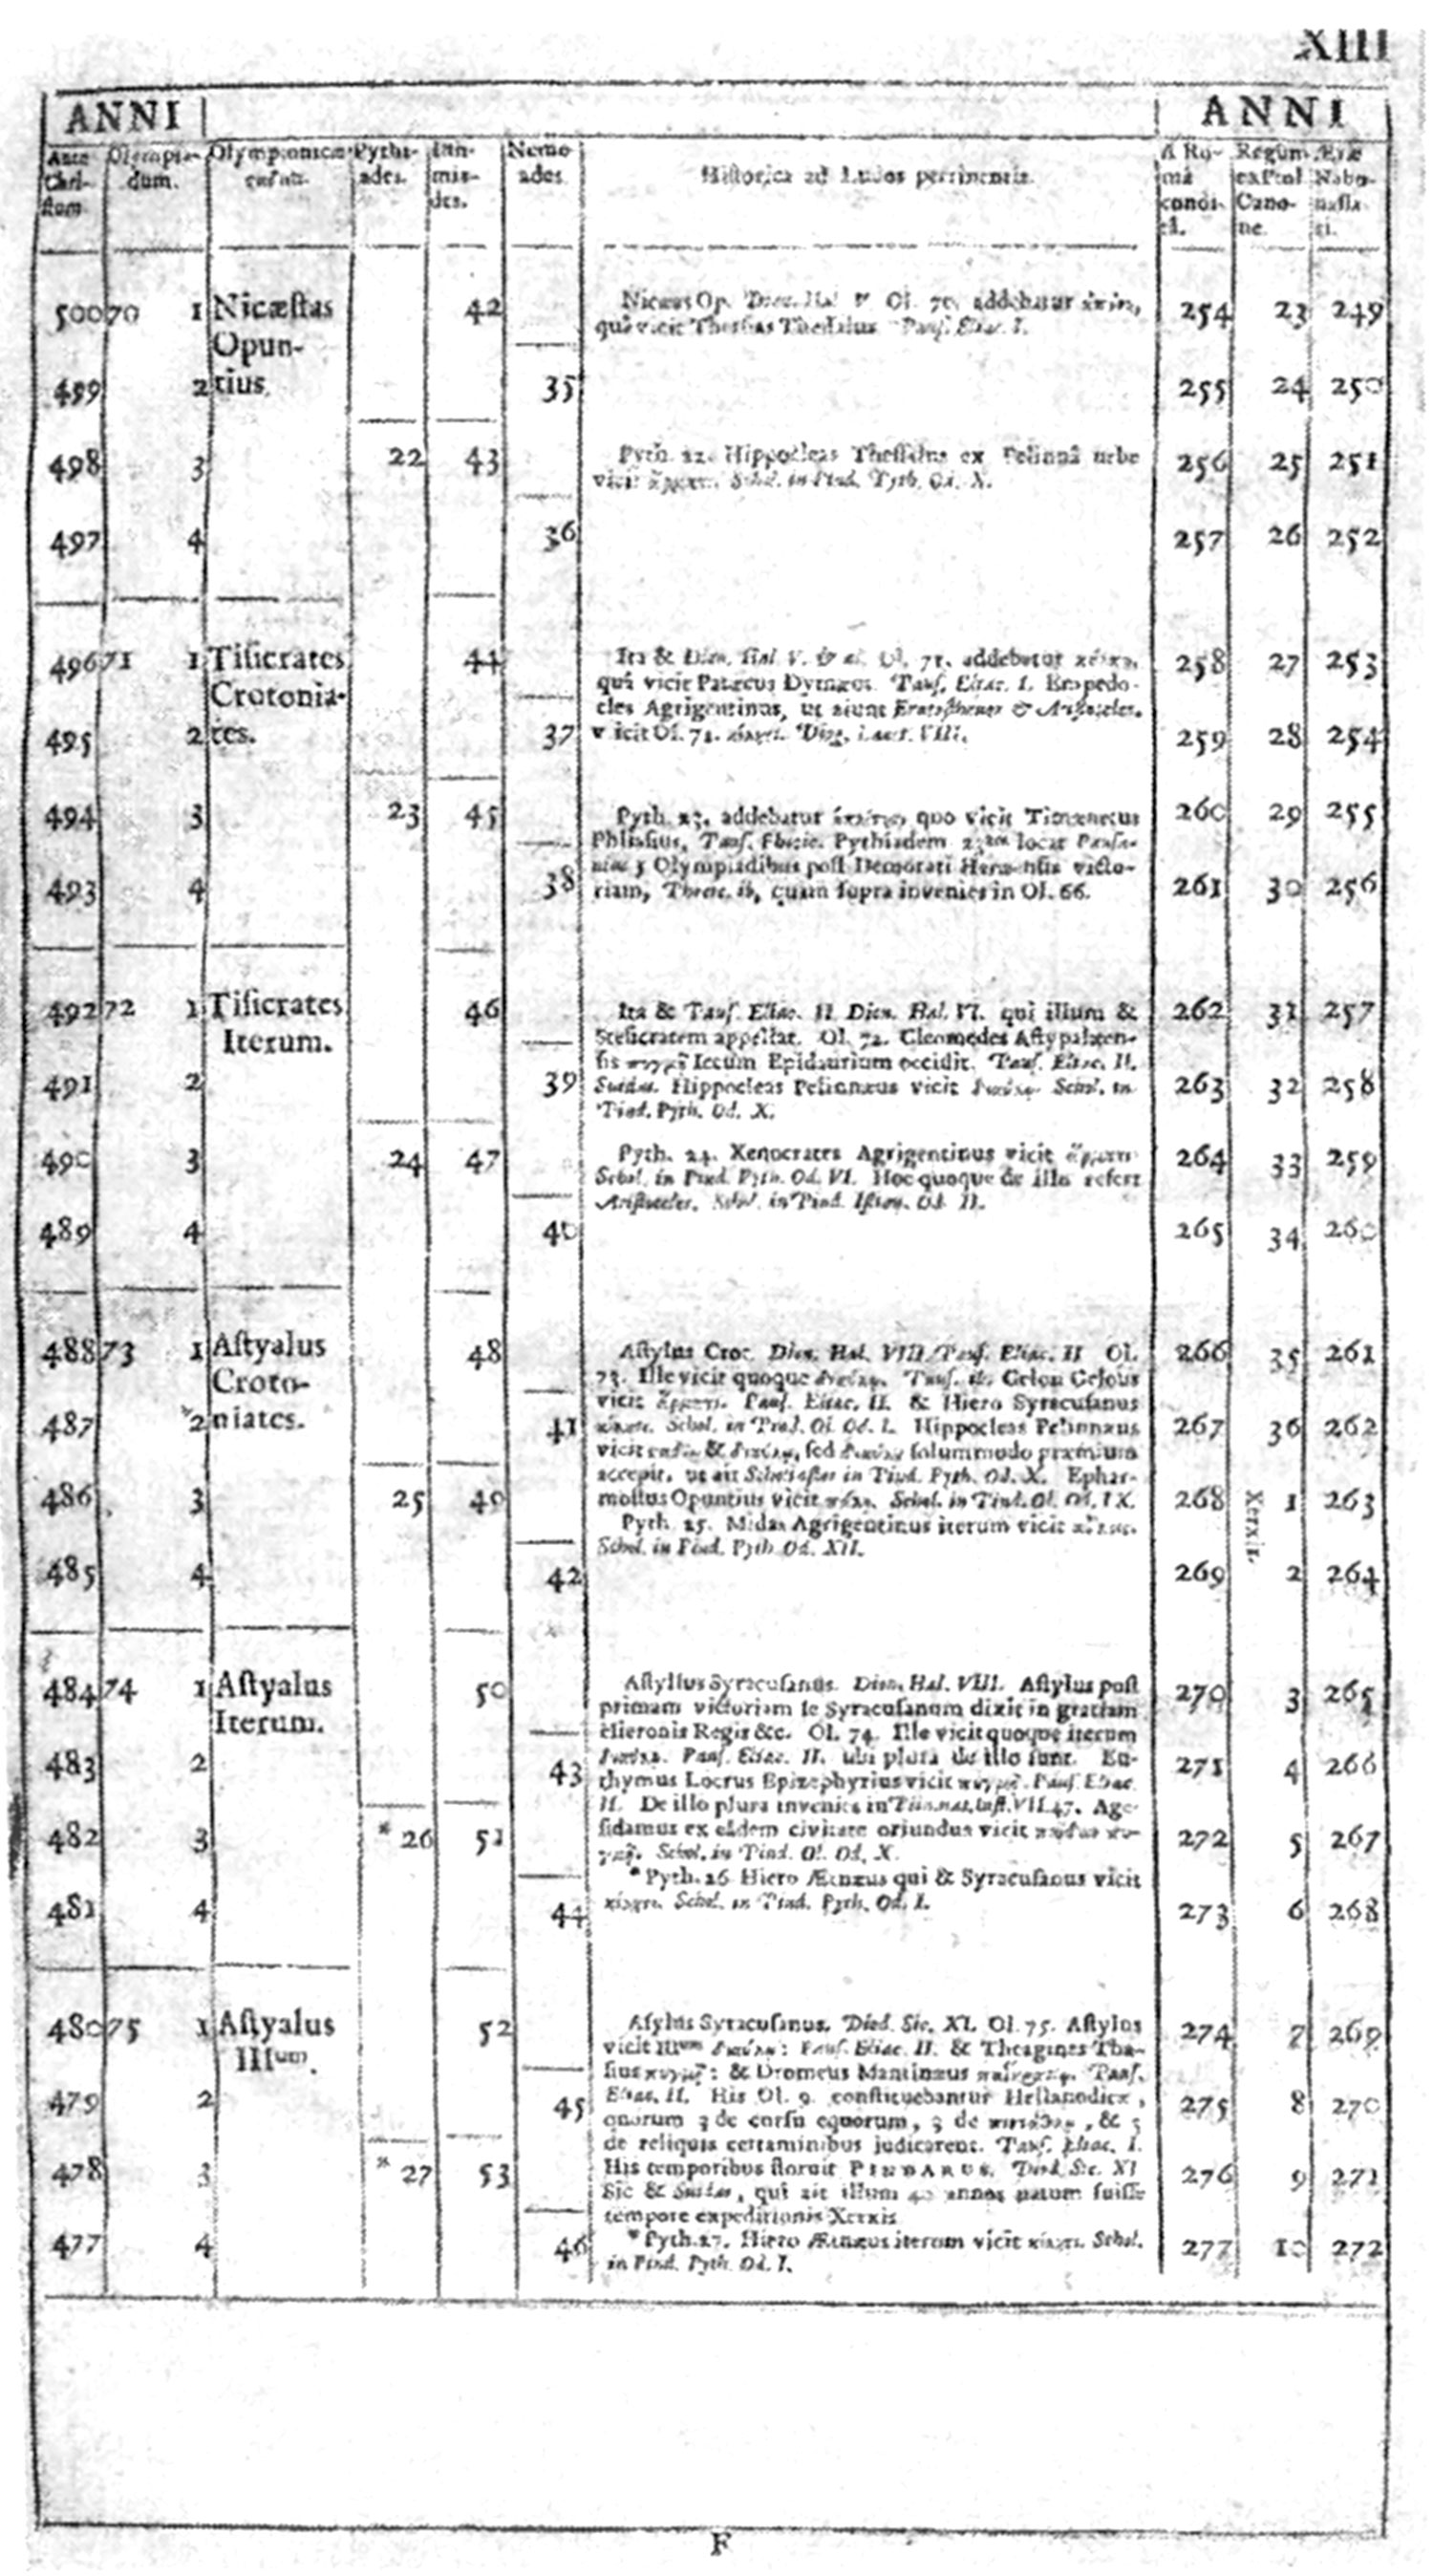 XIII
ANNI
ANNI
Ante Chri- stum
Olympia- dum.
Olympionicæ
Pythi- ades.
Isth- mia- des.
Nemo ades
Historica ad Ludos pertinentia.
A Ro- mâ condi- tâ.
Regum Cano- ne.
Æræ Nabo- nassa ri.
500 70 1 Nicæstas 42 254 23 249
Opun-
499 2 tius. 35 255 24 250
498 3 22 43 256 25 251
497 4 36 257 26 252
496 71 1 Tisicrates 44 258 27 253
Crotonia-
495 2 tes. 37 259 28 254
494 3 23 45 260 29 255
493 4 38 261 30 256
492 72 1 Tisicrates 46 262 31 257
Iterum.
491 2 39 263 32 258
490 3 24 47 264 33 259
489 4 40 265 34 260
488 73 1 Astyalus 48 266 35 261
Croto-
487 2 niates. 41 267 36 262
486 3 25 49 268 Xerxis. 1 263
485 4 42 269 2 264
484 74 1 Astyalus 50 270 3 265
Iterum.
483 2 43 271 4 266
482 3 * 26 51 272 5 267
481 4 44 273 6 268
480 75 1 Astyalus 52 274 7 269
IIIum.
479 2 45 275 8 270
478 3 * 27 53 276 9 271
477 4 46 277 10 272
Ol. 70. addebatur
quâ vicit Thessalus Paus. Eliac. I.
Pyth. 22. Hippocleas Thessalus ex Pelinnâ urbe
vicit Schol. in Pind. Pyth. Od. X.
Ita & Dion. Hal. V. Ol. 71. addebatur
quâ vicit Patæcus Dymæus. Paus. Eliac. I. Empedo-
cles Agrigentinus, ut aiunt Eratosthenes & Aristoteles.
vicit Ol. 71. Diog. Laert. VIII.
Pyth. 23. addebatur quo vicit Timænetus
Phliasius, Paus. Phocic. Pythiadem locat Pausa-
nias 5 Olympiadibus post Demarati victo-
riam, ib, quam supra invenies in Ol. 66.
Ita & Paus. Eliac. II. Dion. Hal. VI. qui illum &
Stesicratem appellat. Ol. 72. Cleomedes Astypalæen-
sis Iccum Epidaurium occidit. Paus. Eliac. II.
Suidas. Hippocleas Pelinnæus vicit Schol. in
Pind. Pyth. Od. X.
Pyth. 24. Xenocrates Agrigentinus vicit
Schol. in Pind. Pyth. Od. VI. Hoc quoque de illo refert
Aristoteles. Schol. in Pind. Isthm. Od. II.
Astylus Crot. Dion. Hal. VIII. Paus. Eliac. II Ol.
73. Ille vicit quoque Paus. ib. Gelon Gelous
vicit Paus. Eliac. II. & Hiero Syracusanus
Schol. in Pind. Ol. Od. I. Hippocleas Pelinnæus
vicit & sed solummodo præmium
accepit, ut ait Scholiastes in Pind. Pyth. Od. X. Ephar-
mostus Opuntius vicit Schol. in Pind. Ol. Od. IX.
Pyth. 25. Midas Agrigentinus iterum vicit
Schol. in Pind. Pyth Od. XII.
Astyllus Syracusanus. Dion. Hal. VIII. Astylus post
primam victoriam se Syracusanum dixit in gratiam
Hieronis Regis &c. Ol. 74. Ille vicit quoque iterum
Paus. Eliac. II. ubi plura de illo sunt. Eu-
thymus Locrus Epizephyrius vicit Paus. Eliac.
II. De illo plura invenies in VII.47. Age-
sidamus ex eâdem civitate oriundus vicit
Schol. in Pind. Ol. Od. X.
* Pyth. 26 Hiero Ætnæus qui & Syracusanus vicit
Schol. in Pind. Pyth. Od. I.
Asylus Syracusanus. Diod. Sic. XI. Ol. 75. Astylus
vicit IIIum Paus. Eliac. II. & Theagines Tha-
sius : & Dromeus Mantinæus Paus.
Eliac. II. His Ol. 9. constituebantur Hellanodicæ,
quorum 3 de cursu equorum, 3 de & 3
de reliquis certaminibus judicarent. Paus. Eliac. I.
His temporibus floruit PINDARUS. Diod. Sic. XI
Sic & Suidas, qui ait illum 40 annos natum fuisse
tempore expeditionis Xerxis
* Pyth. 27. Hiero Ætnæus iterum vicit Schol.
in Pind. Pyth. Od. I.
F